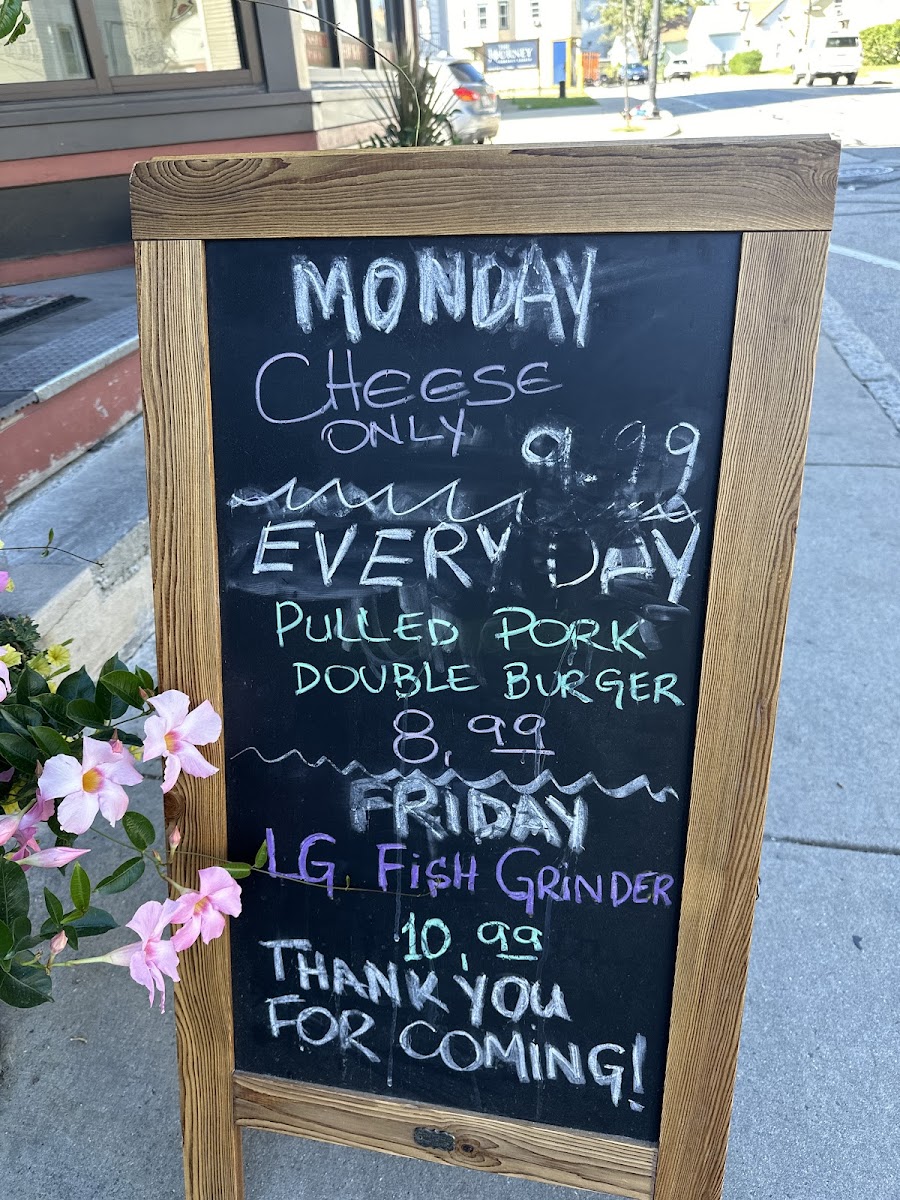 JOURNEY
MONDAY
CHEESE
ONLY
9.99
EVERY DAY
PULLED PORK
DOUBLE BURGER
8,99
FRIDAY
LG. FISH GRINDER
10,99
THANK YOU
FOR COMING!